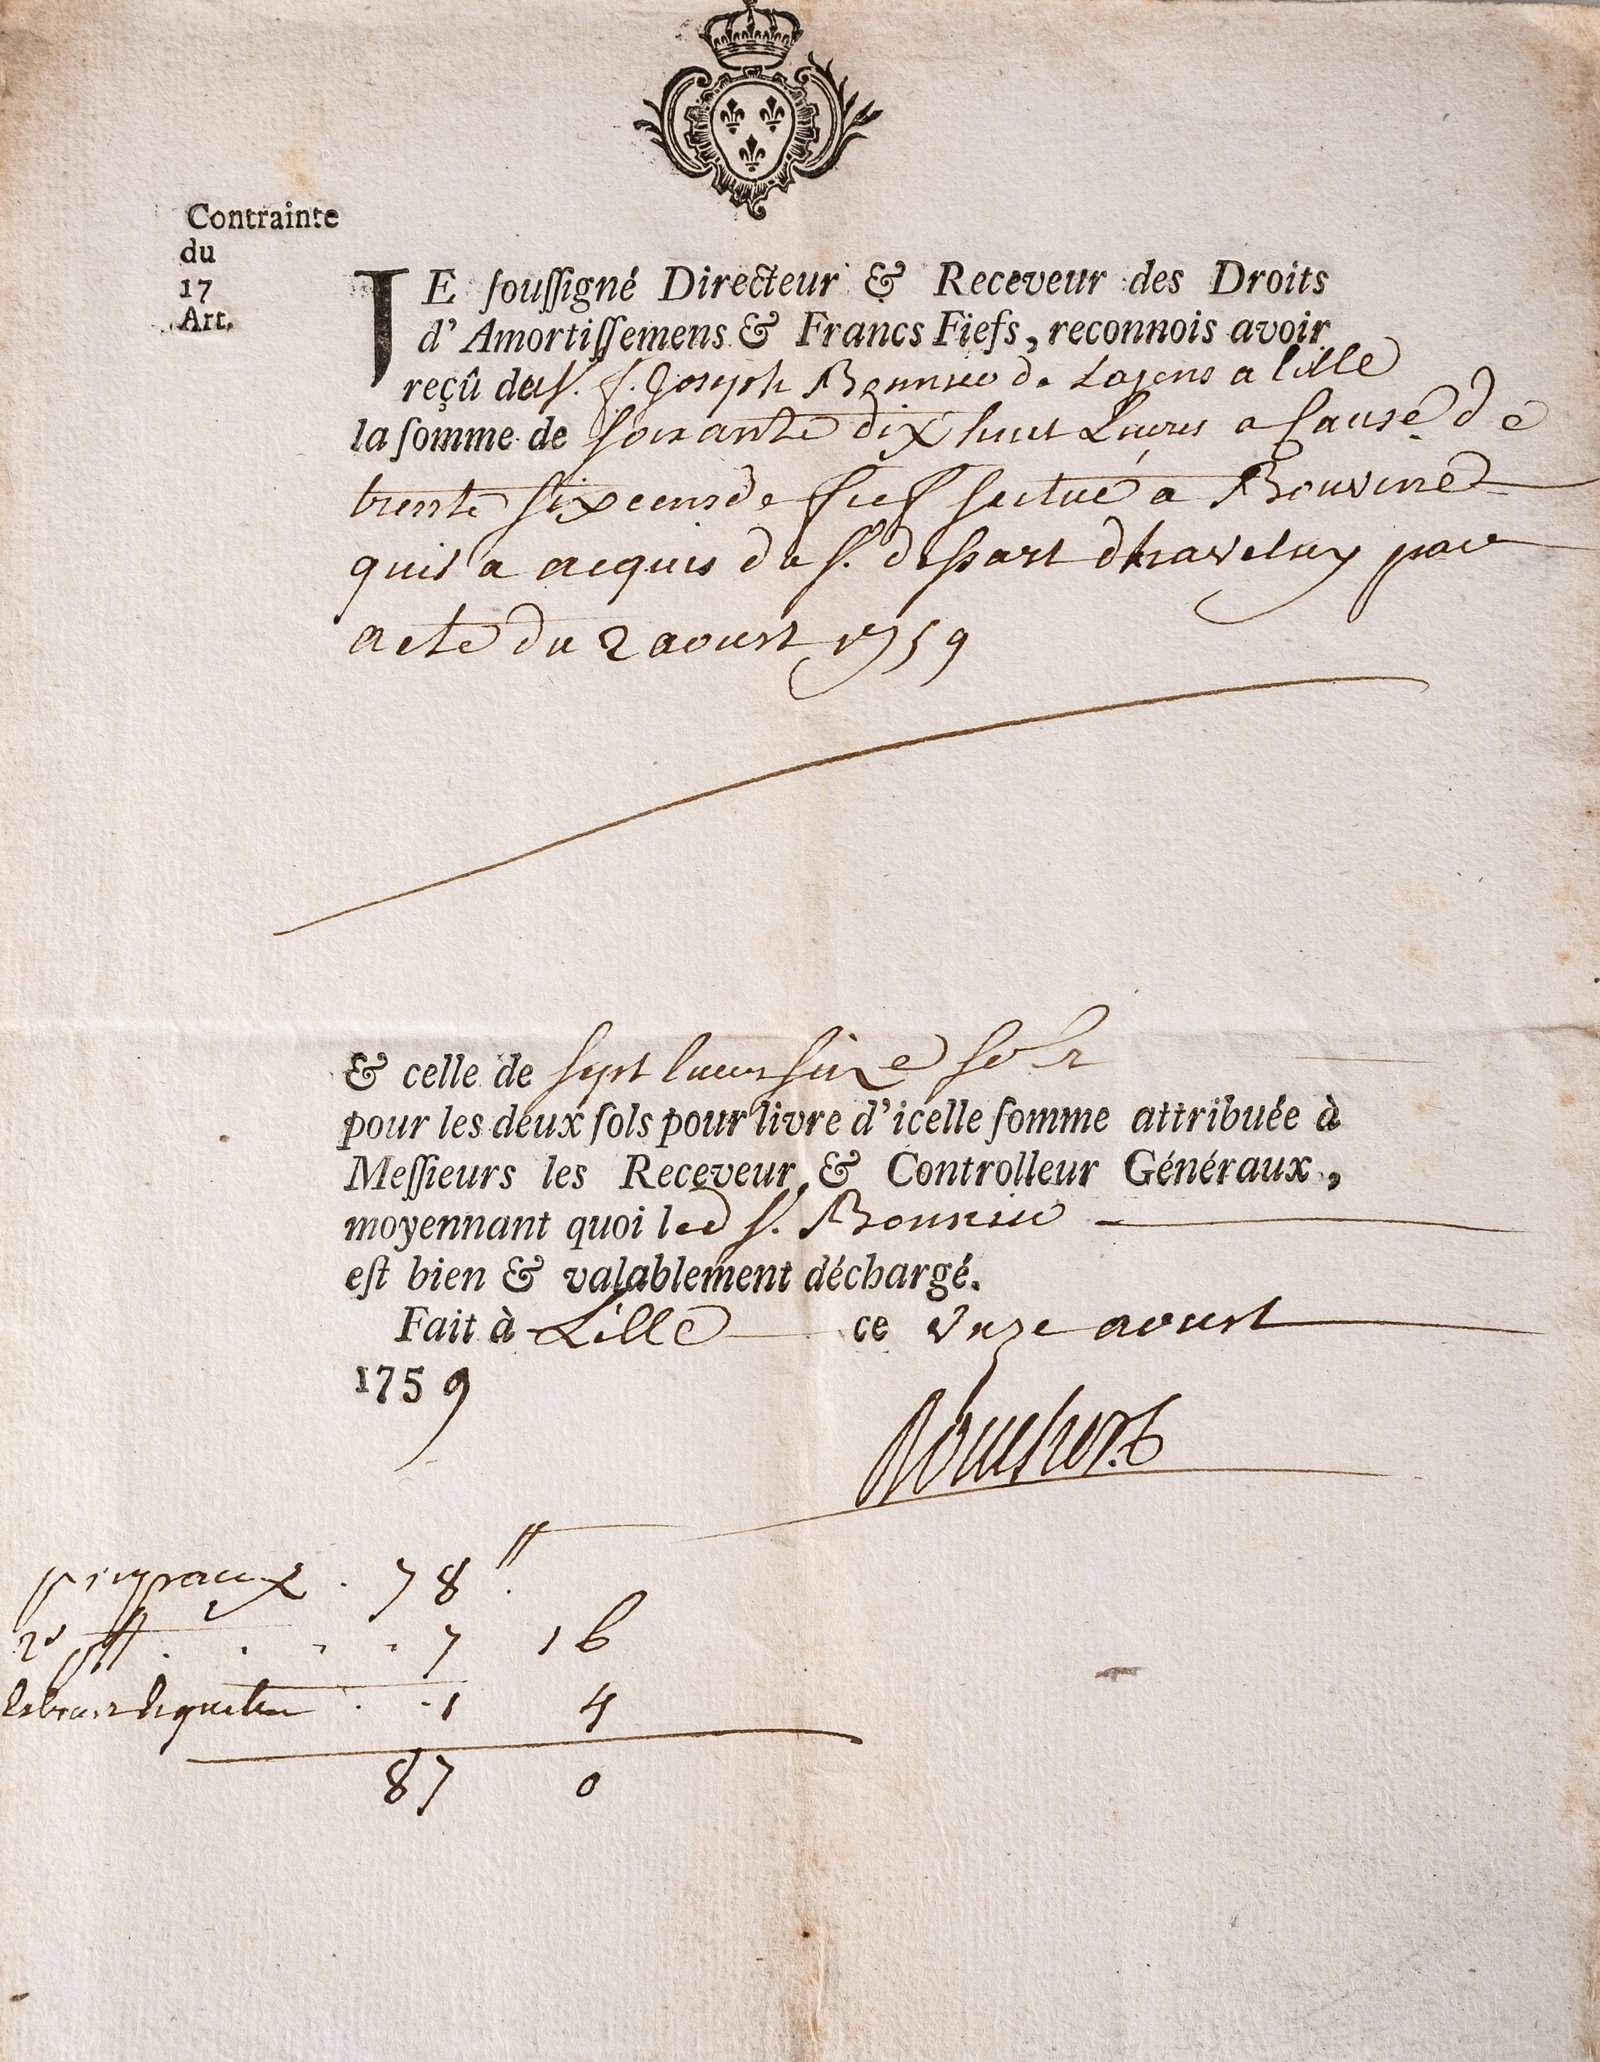 Contrainte
du
17
Art.
JE souſſigné Directeur & Receveur des Droits
d'Amortiſſemens & Francs Fiefs, reconnois avoir
reçû du S. f. Joseph Bonnier de Layens a lille
la ſomme de soixante dix huit Livres a Cause de
trente six cens de fief scitué a Bouvine
quil a acquis du S. par
acte du 2 aoust 1759
& celle de sept livres seize sols
pour les deux ſols pour livre d'icelle ſomme attribuée à
Meſſieurs les Receveur & Controlleur Généraux,
moyennant quoi led S. Bonnier
eſt bien & valablement déchargé.
Fait à Lille ce unze aoust
1759
principaux . 78 ⁄⁄.
2s pr ⁄⁄ . . . . 7 16
. . 1 4
87 0